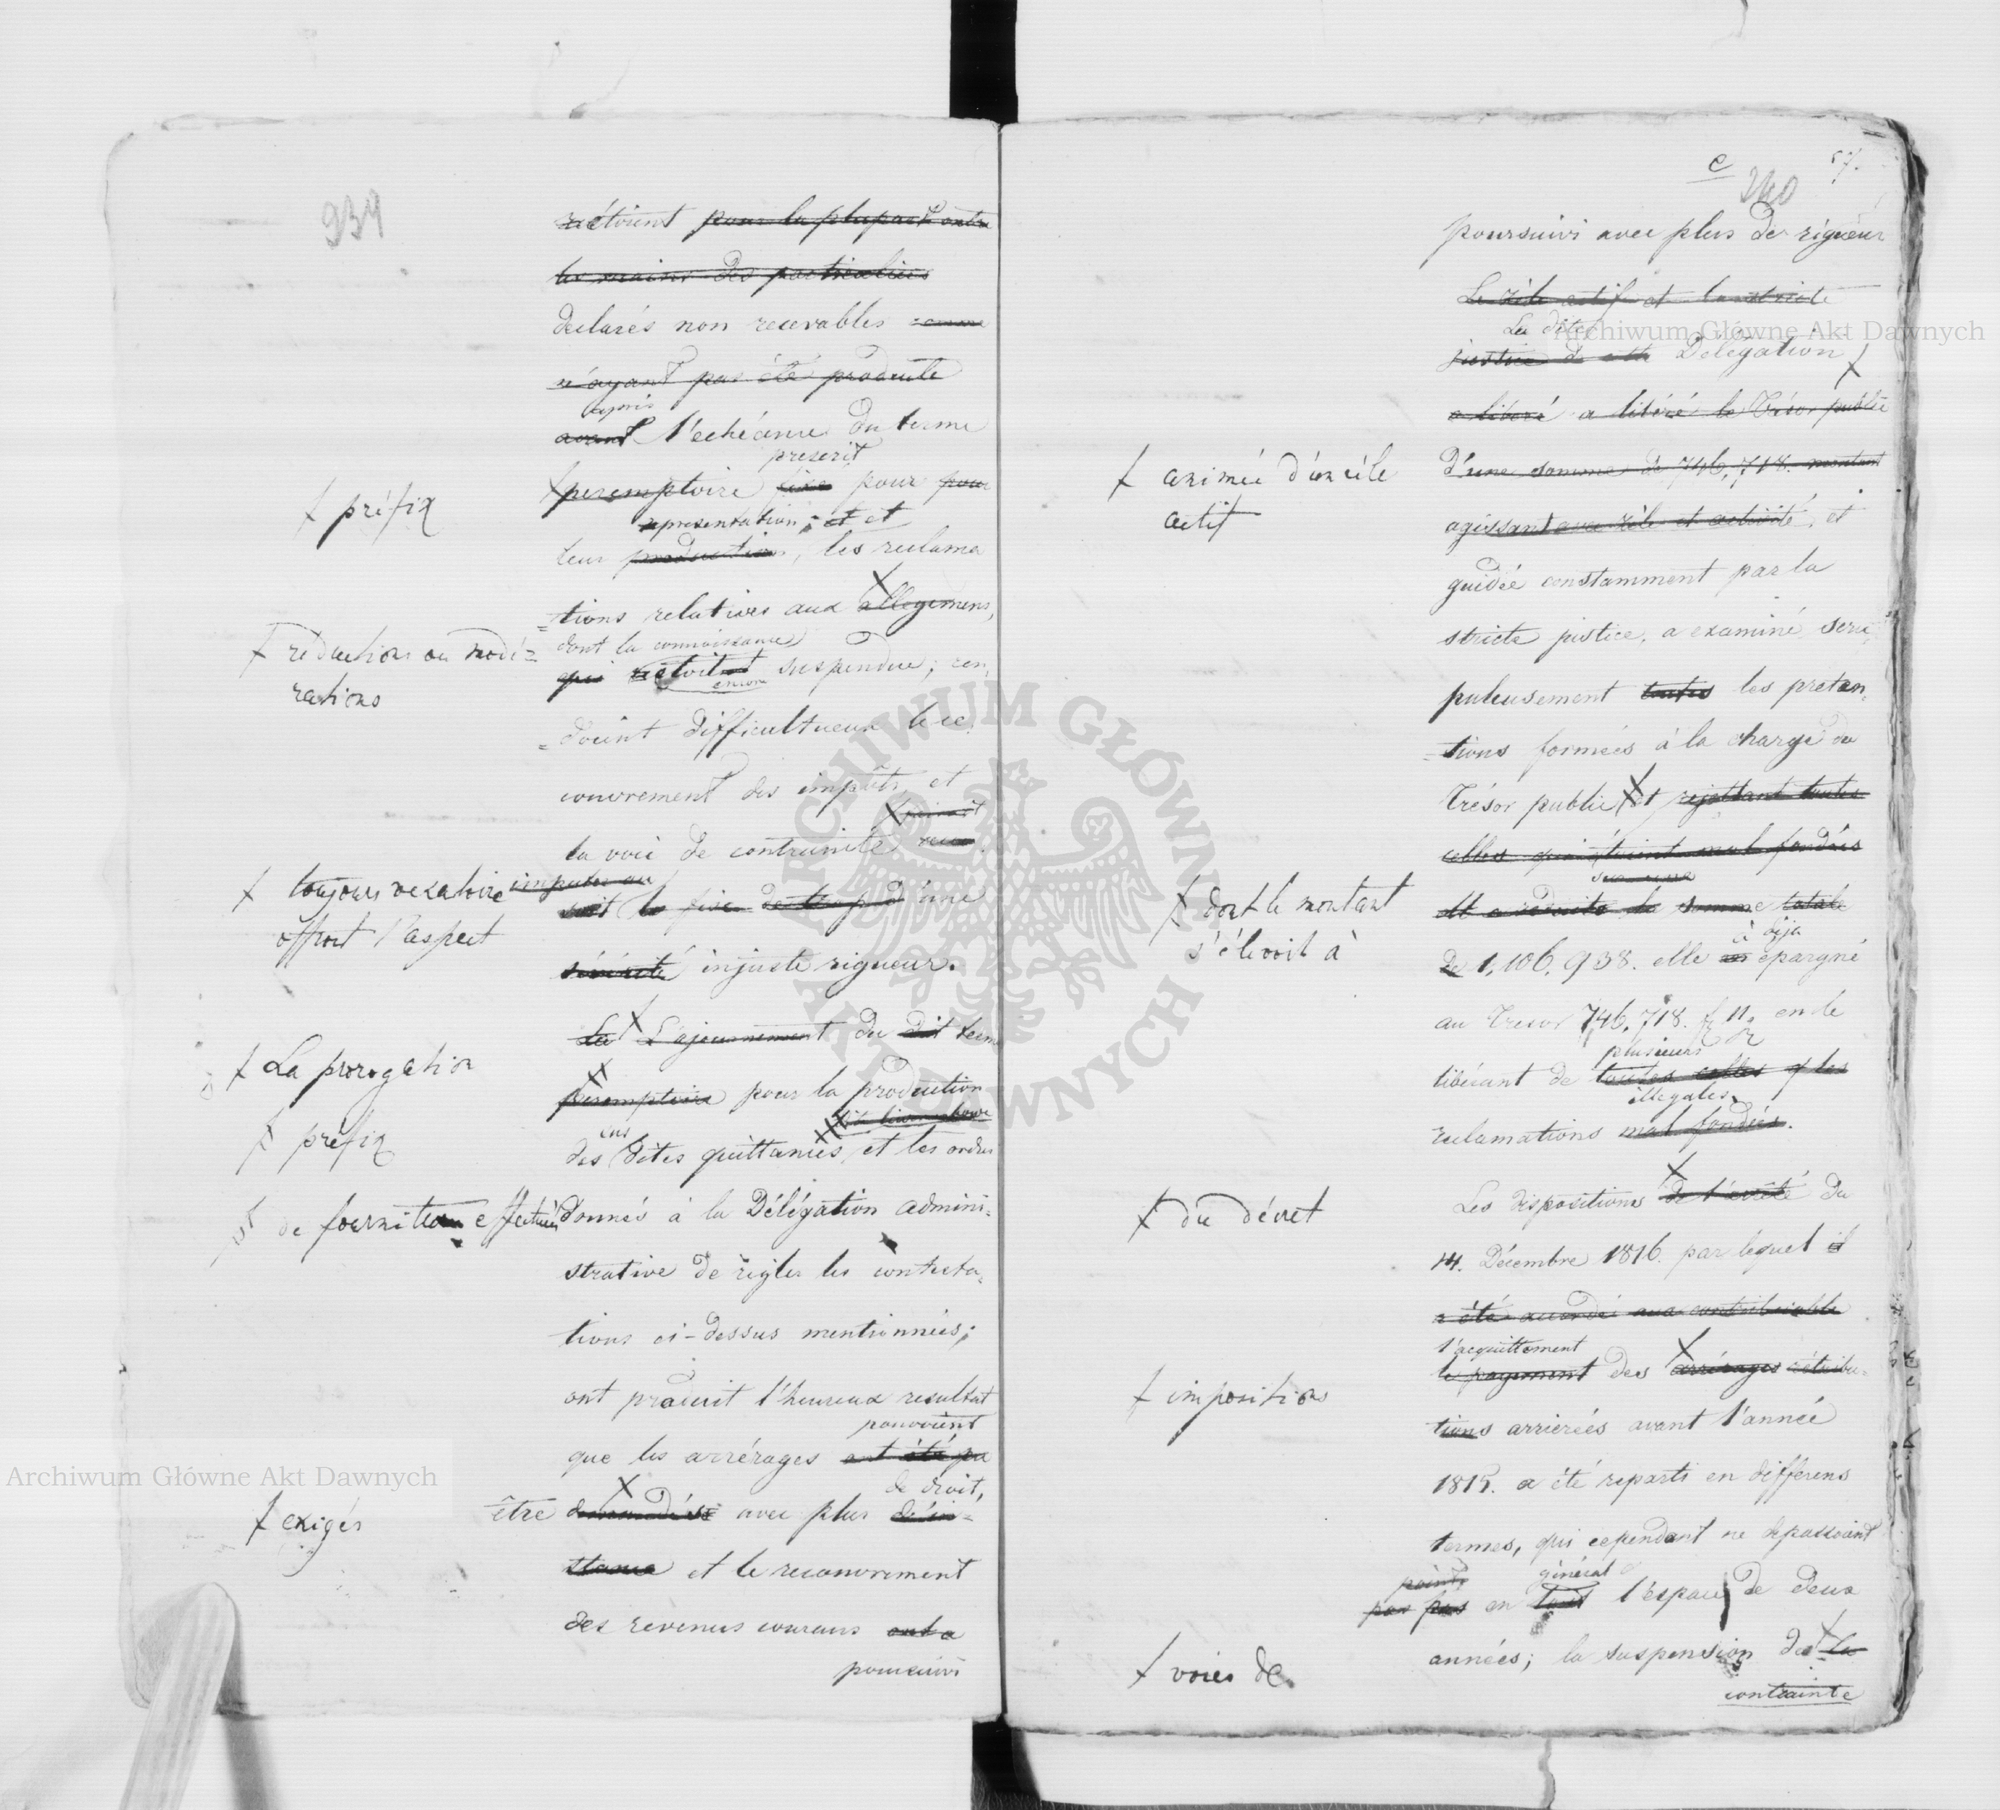 939
n'étoient pour la plupart entre
les mains des particuliers
declarés non recevables comme
n'ayant pas été produite
après
avant l'echéance du terme
prescrit
+ préfix
peremptoire fixé pour pour
representation; et et
leur production, les reclama
tions relatives aux allegemens,
+ reductions ou modé=
rations
dont la connoissance
qui étoit suspendue; ren,
encore
=doient difficultueux le re,
couvrement des impôts, et
la voie de contrainte
+ toujours vexatoire imputer au
offroit l'aspect
soit le fisc de trop d'une
sévérité injuste rigueur.
+ La prorogation
La L'ajournement du dit terme
+ préfix
peremptoire pour la production
ces
des dites quittances, et les ordres
de fourniture effectuées
donnés à la Délégation admini=
strative de régler les contesta=
tions ci-dessus mentionnées;
ont produit l'heureux resultat
pouvoient
que les arrérages ont été pu
de droit,
+ exigés
être demandés avec plus d'in=
stance et le recouvrement
des revenus coureurs ont a
poursuivi
e
240
57.
poursuivi avec plus de rigueur
Le zèle actif et la stricte
La dite
justice de cette Délégation
a liberé a libéré le Trésor public
+ animée d'un zèle
actif
d'une somme de 746,718. montant
agissant avec zèle et activité, et
guidée constamment par la
stricte justice, a examiné scru
puleusement toutes les preten=
=tions formées à la charge du
Trésor public et rejettant toutes
celles qui étoient mal fondées
sur une
+ dont le montant
s'élevoit à
et a reduite la somme totale
à déja
de 1,106,938. elle en épargné
au Tresor 746,718. f 11. en le
plusieurs
libérant de toutes celles
illegales.
reclamations mal fondées.
+ du décret
Les dispositions de l'arrêté du
14. Décembre 1816. par lequel il
a été accordé aux contribuable
l'acquittement
le payement des arrérages rétribu=
+ impositions
tions arrierées avant l'année
1815. a été reparti en différens
termes, qui cependant ne depassoient
point, général
pas pas en tout l'espace de deux
+ voies de
années; la suspension de la
contrainte
Archiwum Główne Akt Dawnych
Archiwum Główne Akt Dawnych
ARCHIWUM GŁÓWNE AKT DAWNYCH